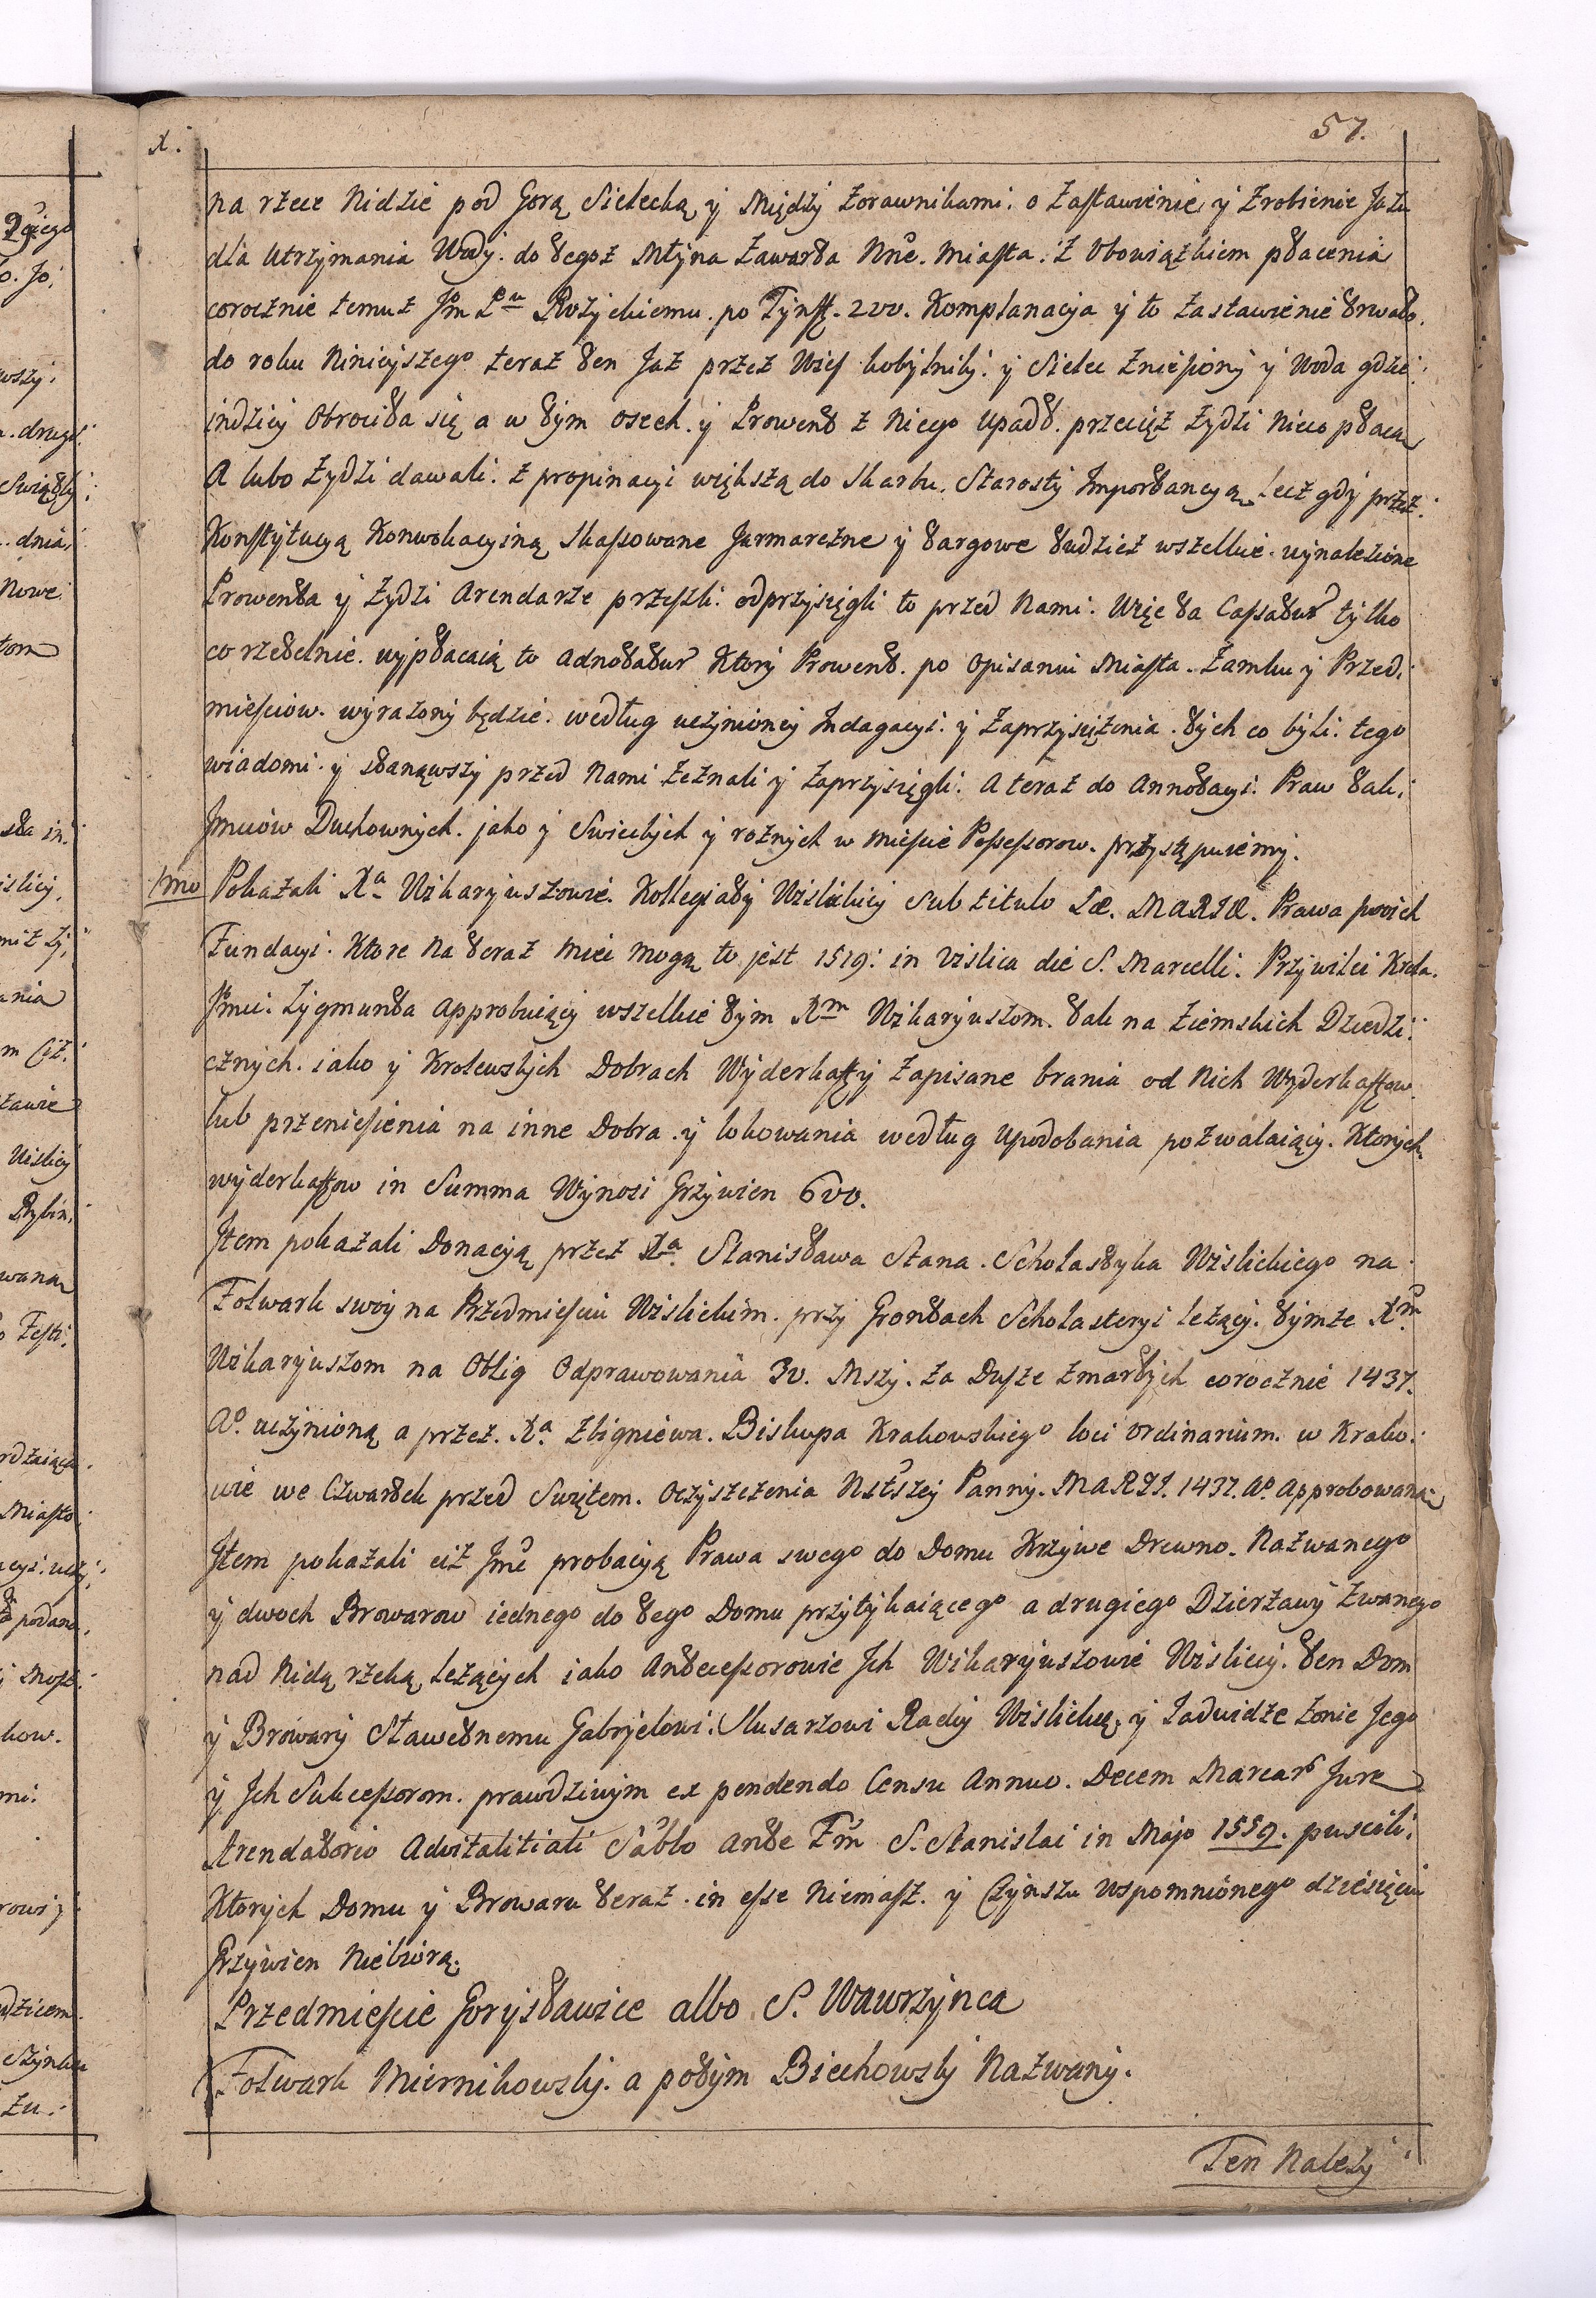 X.
57.
na rzece Nidzie pod Gorą Sielecką y Między Zorawnikami. o Zastawienie y Zrobienie Jazu
dla utrzymania Wody. do tegoz Młyna Zawarta Nne. Miasta. z Obowiązkiem płacenia
corocznie temuz Jm Pu Rozyckiemu. po Tynff. 200. Komplanacya y to zastawienie trwało.
do roku Ninieyszego teraz ten Jaz przez Wieś kobylniky. y Sielec zniesiony y Woda gdzie
indziey Obrociła się a w tym osech. y Prowent z Niego upadł. przecięz Zydzi nieco płacą
A lubo Zydzi dawali. z propinacyi większą do skarbu. Starosty Importancyą lecz gdy przez.
Konstytucyą Konwokacyiną skassowane Jarmarczne y targowe tudziez wszelkie. wynalezione
Prowenta y Zydzi Arendarze przeszli. odprzysięgli to przed Nami. Więc ta Cassatur tylko
co rzetelnie. wypłacaią to adnotatur Który Prowent. po opisaniu Miasta. Zamku y Przed.
mieściow. wyrazony będzie. według uczynioney Indagacyi. y Zaprzysięzenia. tych co byli. tego
wiadomi. y stanąwszy przed Nami zeznali y zaprzysięgli. A teraz do Annotacyi. Praw tak.
Jmciów Duchownych. jako y Swieckych y roznych w mieście Possessorow. przystępuiemy.
1mo Pokazali Xa Wikaryuszowie. Kollegiaty Wislickiey sub titulo Sæ. MARIÆ. Prawa swoich
Fundacyi. Ktore na teraz mieć mogą to jest 1519. in Vislica die S. Marcelli. Przywiley Krola.
Jmci. Zygmunta approbuiący wszelkie tym Xm Wikaryuszom. tak na Ziemskich Dziedzi.
cznych. iako y Krolewskych Dobrach Wyderkaffy zapisane brania od Nich Wyderkaffow
lub przeniesienia na inne Dobra. y lokowania według upodobania pozwalaiący. Ktorych
wyderkaffow in Summa Wynosi Grzywien 600.
Item pokazali Donacyą przez Xa. Stanisława Stana. Scholastyka Wislickiego na
Folwark swoy na Przedmieściu Wislickim. przy Grontach Scholasteryi lezący. tymze Xm
Wikaryuszom na Oblig Odprawowania 30. Mszy. za Dusze zmarłych corocznie 1437.
Ao. uczynioną a przez. Xa. Zbigniewa. Biskupa Krakowskiego loci ordinarium. w Krako.
wie we Czwartek przed Swiętem. Oczyszczenia Nstszey Panny. MARYI. 1437. Ao. Approbowaną
Item pokazali ciz Jme probacyą Prawa swego do Domu Krzywe Drewno. Nazwanego
y dwoch Browarow iednego do tego Domu przytykaiącego a drugiego Dzierzawy zwanego
nad Nidą rzeką lezących iako Antecessorowie Jch Wikaryuszowie Wisliccy. ten Dom
y Browary Sławetnemu Gabryelowi. Slusarzowi Radcy Wislicku. y Jadwidze zonie Jego
y Jch Sukcessorom. prawdziwym ex pendendo Censu Annuo. Decem Marcar Jure
Arendatorio Advitalitiali Sabbo ante Fm S. Stanislai in Majo 1559. puscili.
Ktorych Domu y Browaru teraz. in esse niemasz. y Czynszu wspomnionego dziesięciu
Grzywien Niebiorą.
Przedmieście Gorysławice albo S. Wawrzynca
Folwark Miernikowsky. a potym Biechowsky Nazwany.
Ten Nalezy